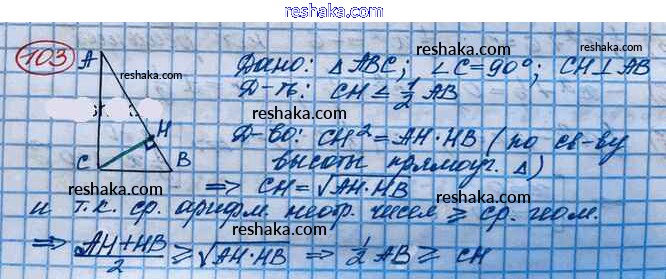 reshaka.com
103
A
H
C
B
Дано: △ABC; ∠C=90°; CH⊥AB
Д-ть: CH ≤ 1/2 AB
Д-во: CH² = AH·HB (по св-ву
высоты прямоуг. △)
⇒ CH = √AH·HB
и т.к. ср. арифм. неотр. чисел ≥ ср. геом.
⇒ AH+HB/2 ≥ √AH·HB ⇒ 1/2 AB ≥ CH
reshaka.com
reshaka.com
reshaka.com
reshaka.com
reshaka.com
reshaka.com
reshaka.com
reshaka.com